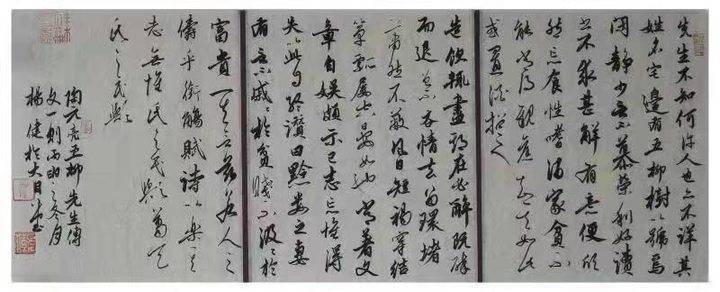 先生不知何許人也亦不詳其
姓名宅邊有五柳樹以號焉
閑靜少言不慕榮利好讀
書不求甚解有意便欣
然忘食性嗜酒家貧不
能常得親舊知其如此
或置酒招之
造飲輒盡期在必醉既醉
而退曾不吝情去留環堵
蕭然不蔽風日短褐穿結
簞瓢屢空晏如也常著文
章自娛頗示己志忘懷得
失以此自終讚曰黔婁之妻
有言不戚戚於貧賤不汲汲於
富貴其言茲若人之
儔乎銜觴賦詩以樂其
志無懷氏之民歟葛天
氏之民歟
陶元亮五柳先生傳
文一則丙申之冬月
楊健於大目